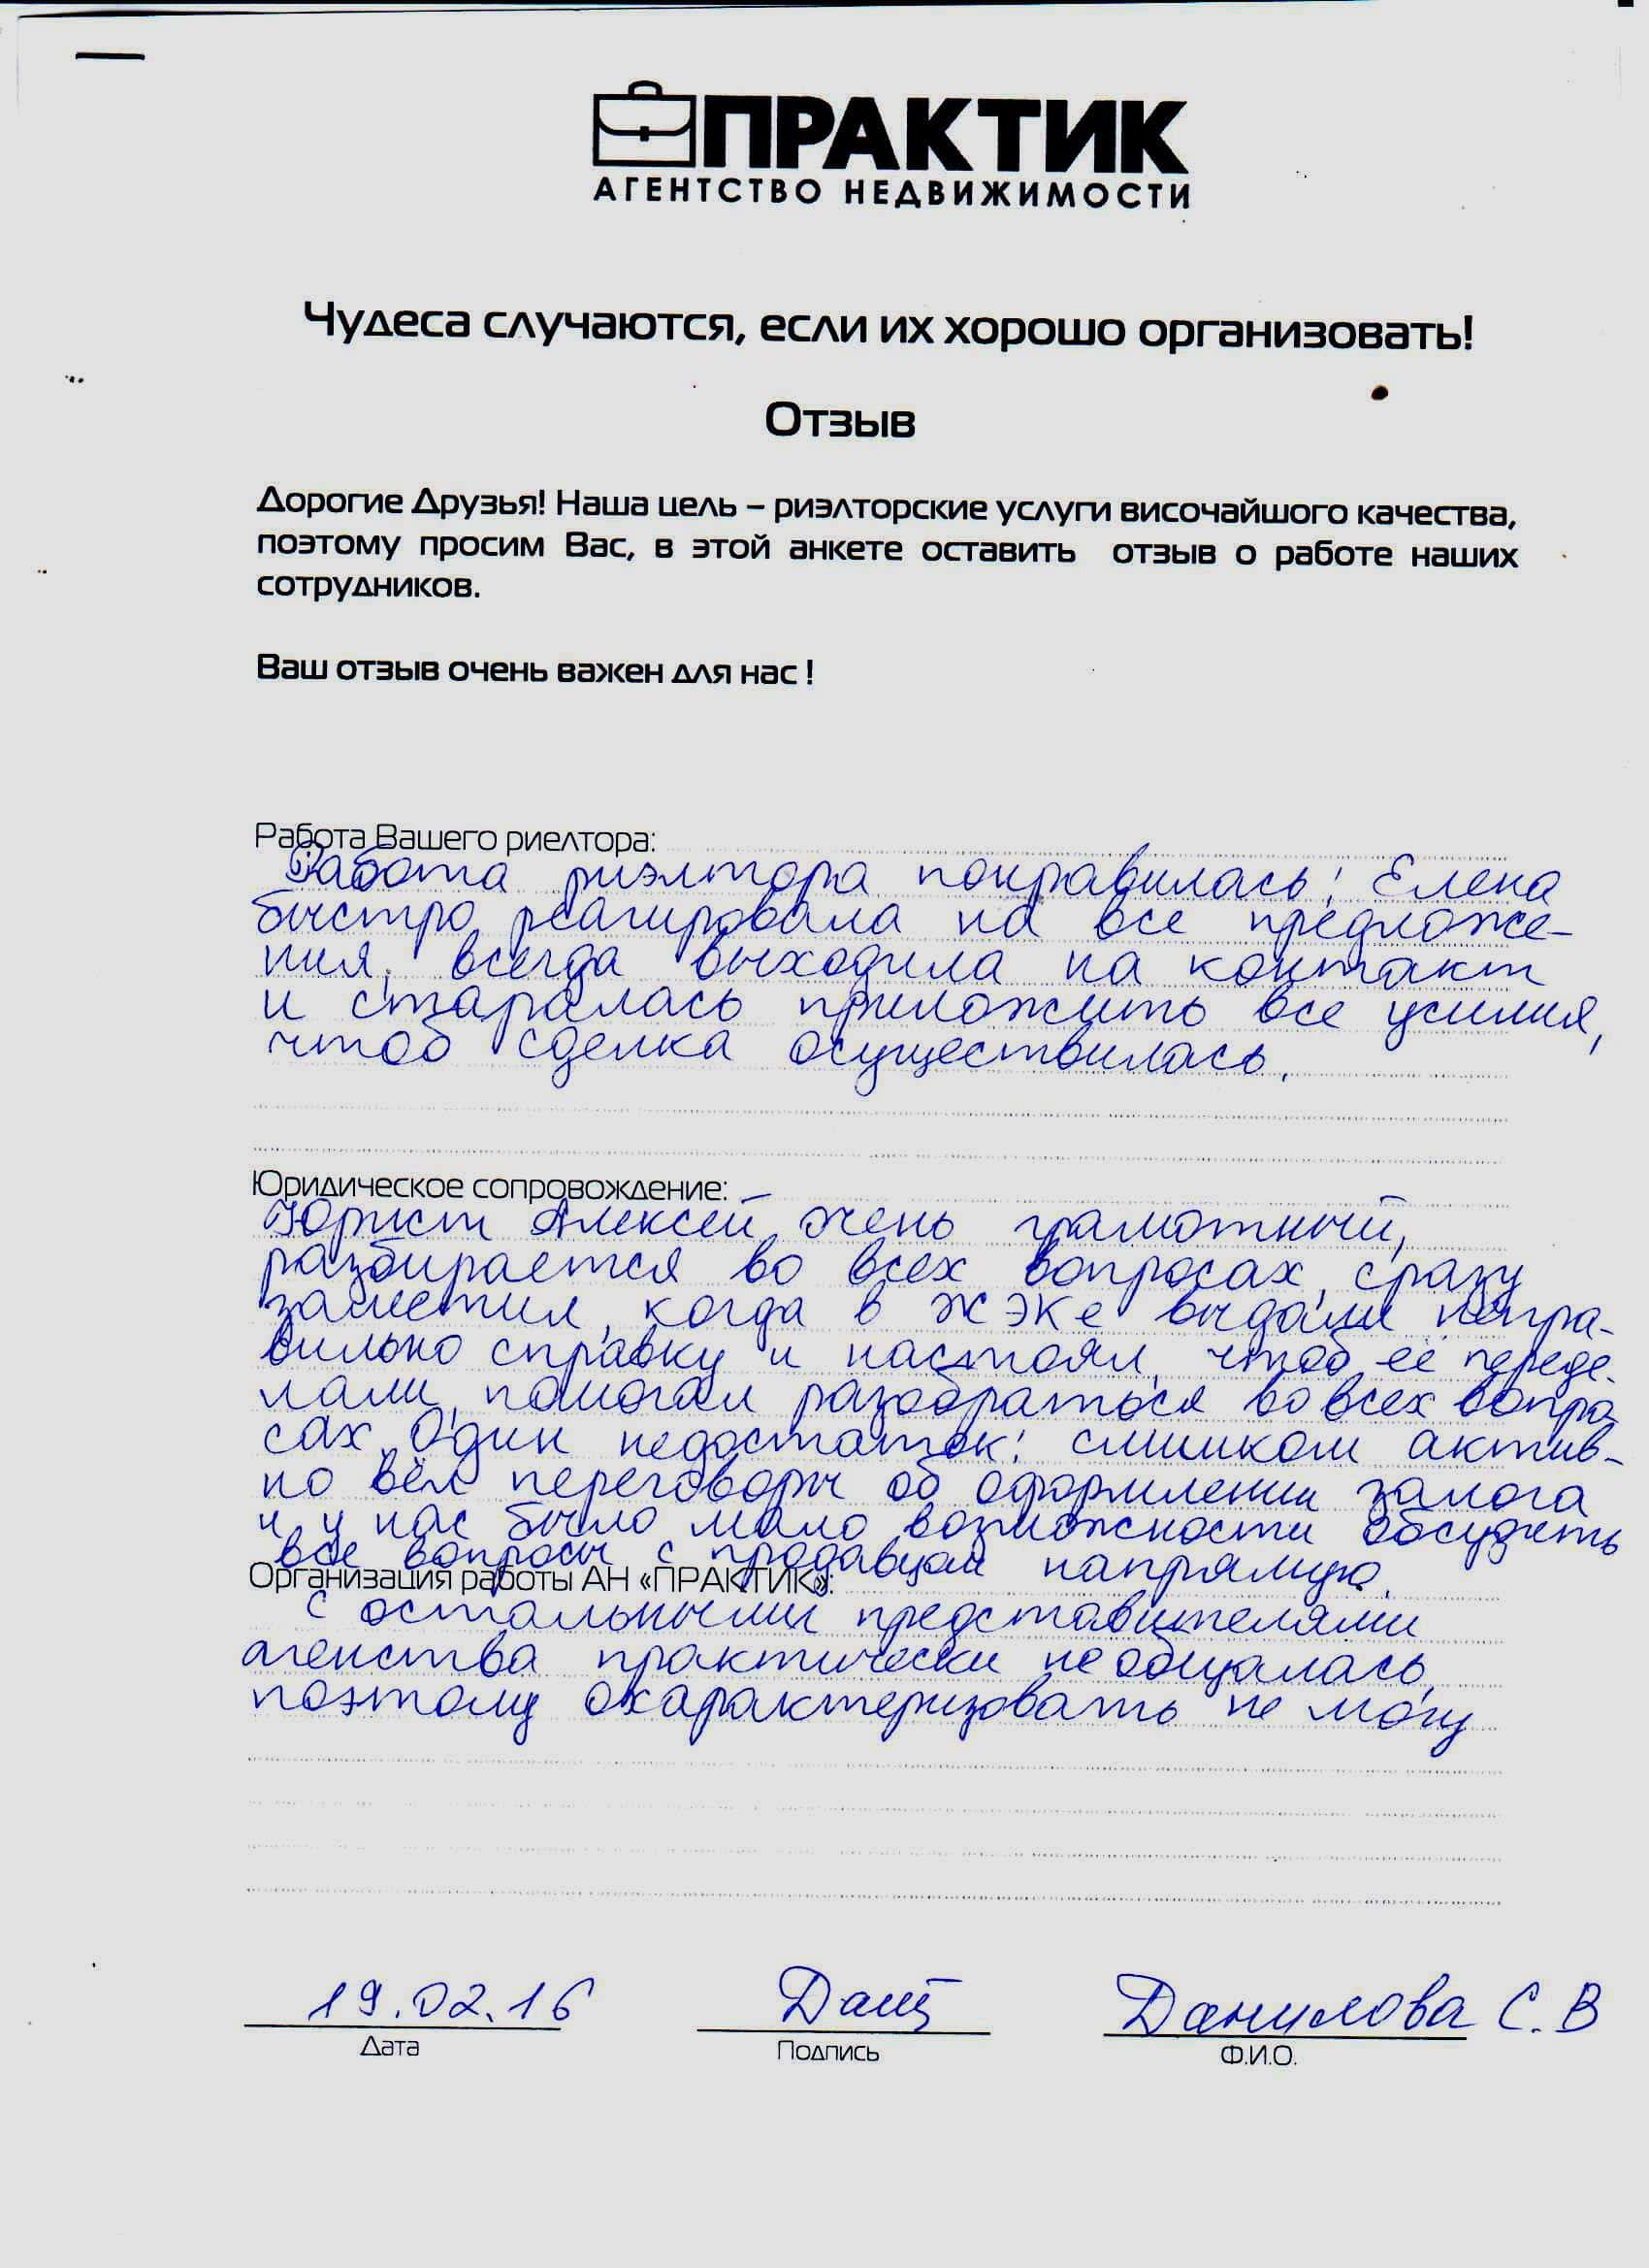 ПРАКТИК
АГЕНТСТВО НЕДВИЖИМОСТИ
Чудеса случаются, если их хорошо организовать!
Отзыв
Дорогие Друзья! Наша цель – риэлторские услуги височайшого качества,
поэтому просим Вас, в этой анкете оставить отзыв о работе наших
сотрудников.
Ваш отзыв очень важен для нас !
Работа Вашего риелтора:
Работа риэлтора понравилась! Елена
быстро реагировала на все предложе-
ния, всегда выходила на контакт
и старалась приложить все усилия,
чтоб сделка осуществилась.
Юридическое сопровождение:
Юрист Алексей очень грамотный,
разбирается во всех вопросах, сразу
заметил, когда в ЖЭКе выдали непра-
вильно справку и настоял, чтоб её переде-
лали, помогал разобраться во всех вопро-
сах. Один недостаток: слишком актив-
но вёл переговоры об оформлении залога
и у нас было мало возможности обсудить
все вопросы с продавцом напрямую.
Организация работы АН «ПРАКТИК»:
С остальными представителями
агенства практически не общалась,
поэтому охарактеризовать не могу
19.02.16 Дани Данилова С. В
Дата Подпись Ф.И.О.